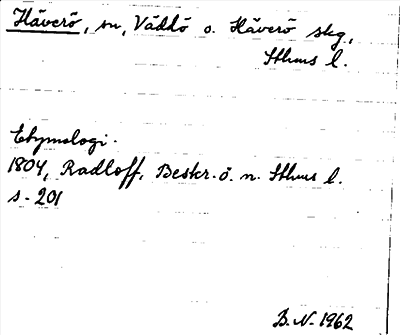 Häverö, sn, Väddö o. Häverö skg,
Sthms l.
Etymologi.
1804, Radloff, Beskr. ö. n. Sthms l.
s. 201
B. N. 1962